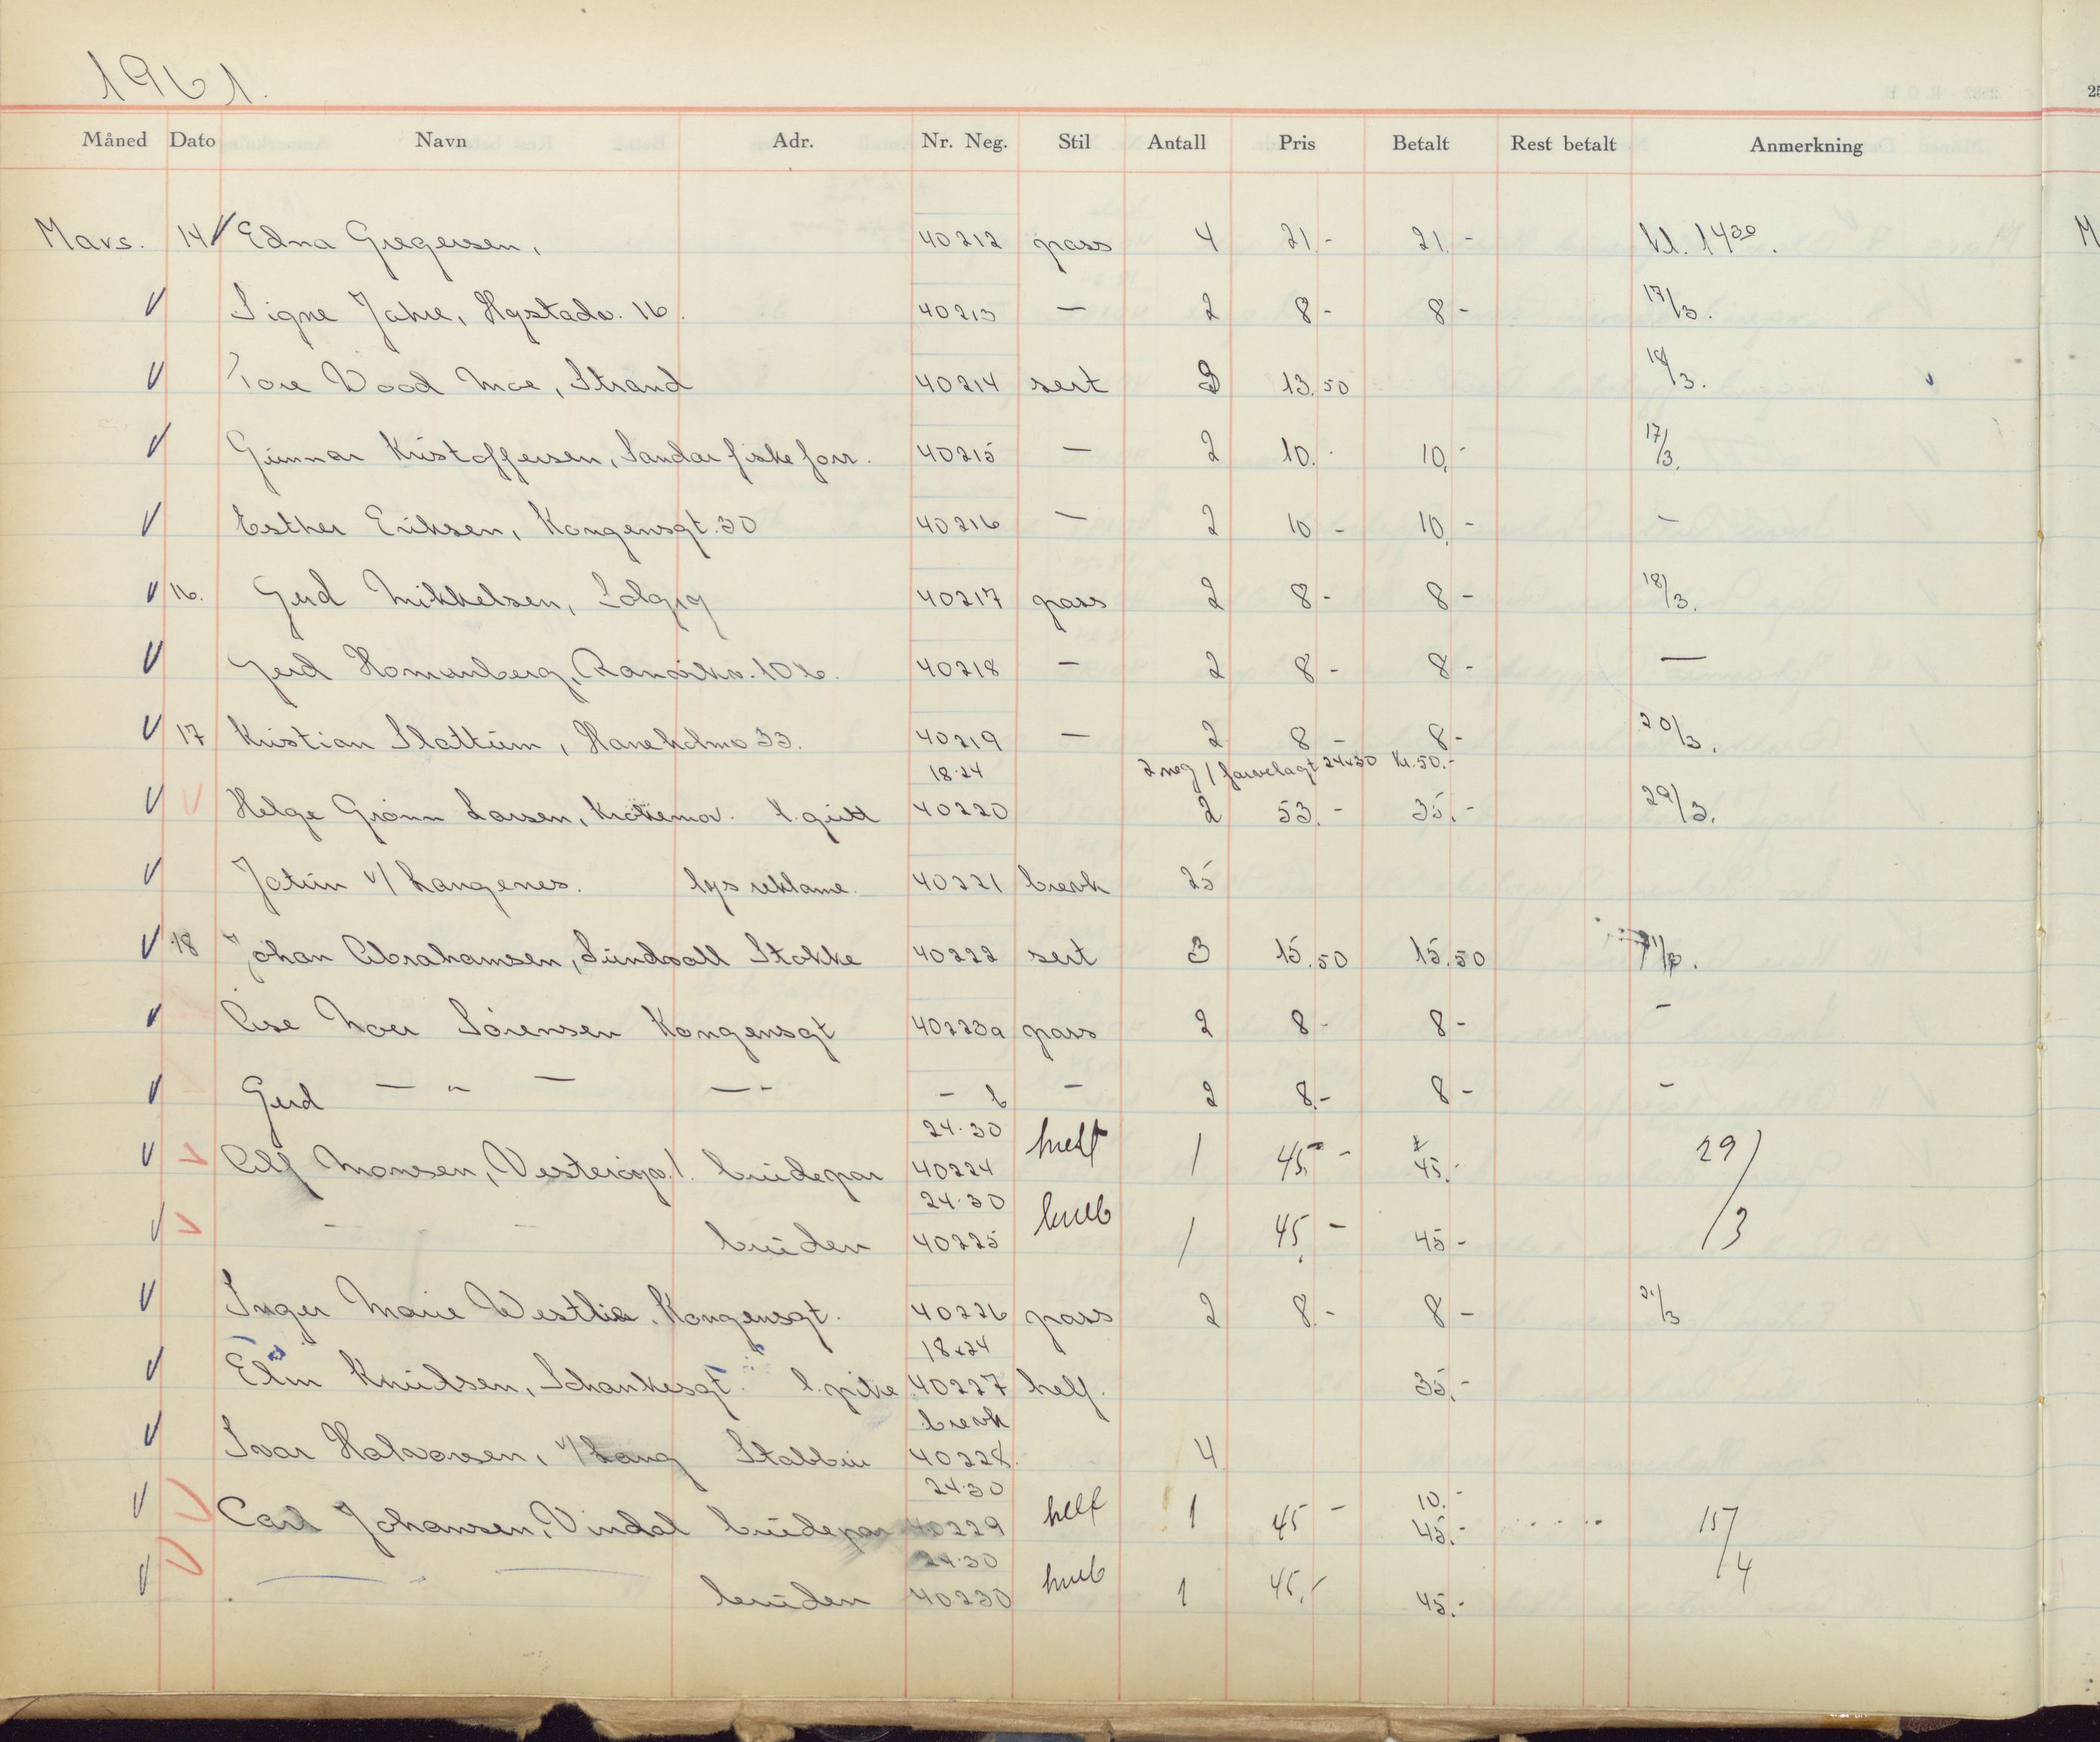 1961.
Måned Dato Navn Adr. Nr. Neg. Stil Antall Pris Betalt Rest betalt Anmerkning
Mars. 14 Edna Gregersen, 40212 pass 4 21,- 21,- kl. 14³⁰.
Signe Jahre, Hystadv. 16. 40213 — 2 8,- 8,- 17/3.
Tore Wood Moe, Strand 40214 sert 3 13,50 18/3.
Gunnar Kristoffersen, Sandar fiske forr. 40215 — 2 10,- 10,- 17/3.
Esther Eriksen, Kongensgt. 30 40216 — 2 10,- 10,- —
16. Gerd Mikkelsen, 40217 pass 2 8,- 8,- 18/3.
Gerd Homanberg, 40218 — 2 8,- 8,- —
17 Kristian Slattum, Haneholmv 33. 40219 — 2 8,- 8,- 20/3.
18·24 2 neg / farvelagt 24x30 kr. 50.-
Helge Grönn Larsen, l. gutt 40220 2 53,- 35,- 29/3.
Jotun v/ Langenes. lysreklame. 40221 brevk 25
18 Johan Abrahamsen, Sundvall Stokke 40222 sert 3 15,50 15,50
Åse Moer Sörensen Kongensgt 40223a pass 2 8,- 8,- -
Gerd — „ — — - — b — 2 8,- 8,- -
24·30
Alf Monsen, brudepar 40224 helf 1 45,- 45,- 29/3
24·30
bruden 40225 kneb 1 45,- 45,-
Inger Marie Westlie, Kongensgt. 40226 pass 2 8,- 8,- 21/3
18x24
Elin Knudsen, Schankesgt. l. pike 40227 helf. 35,-
brevk
Ivar Halvorsen, v/ Lang Stabbur 40228. 4
24·30 10,-
Carl Johansen, Vindal brudepar 40229 helf 1 45,- 45,- 15/4
24·30
bruden 40230 kneb 1 45,- 45,-